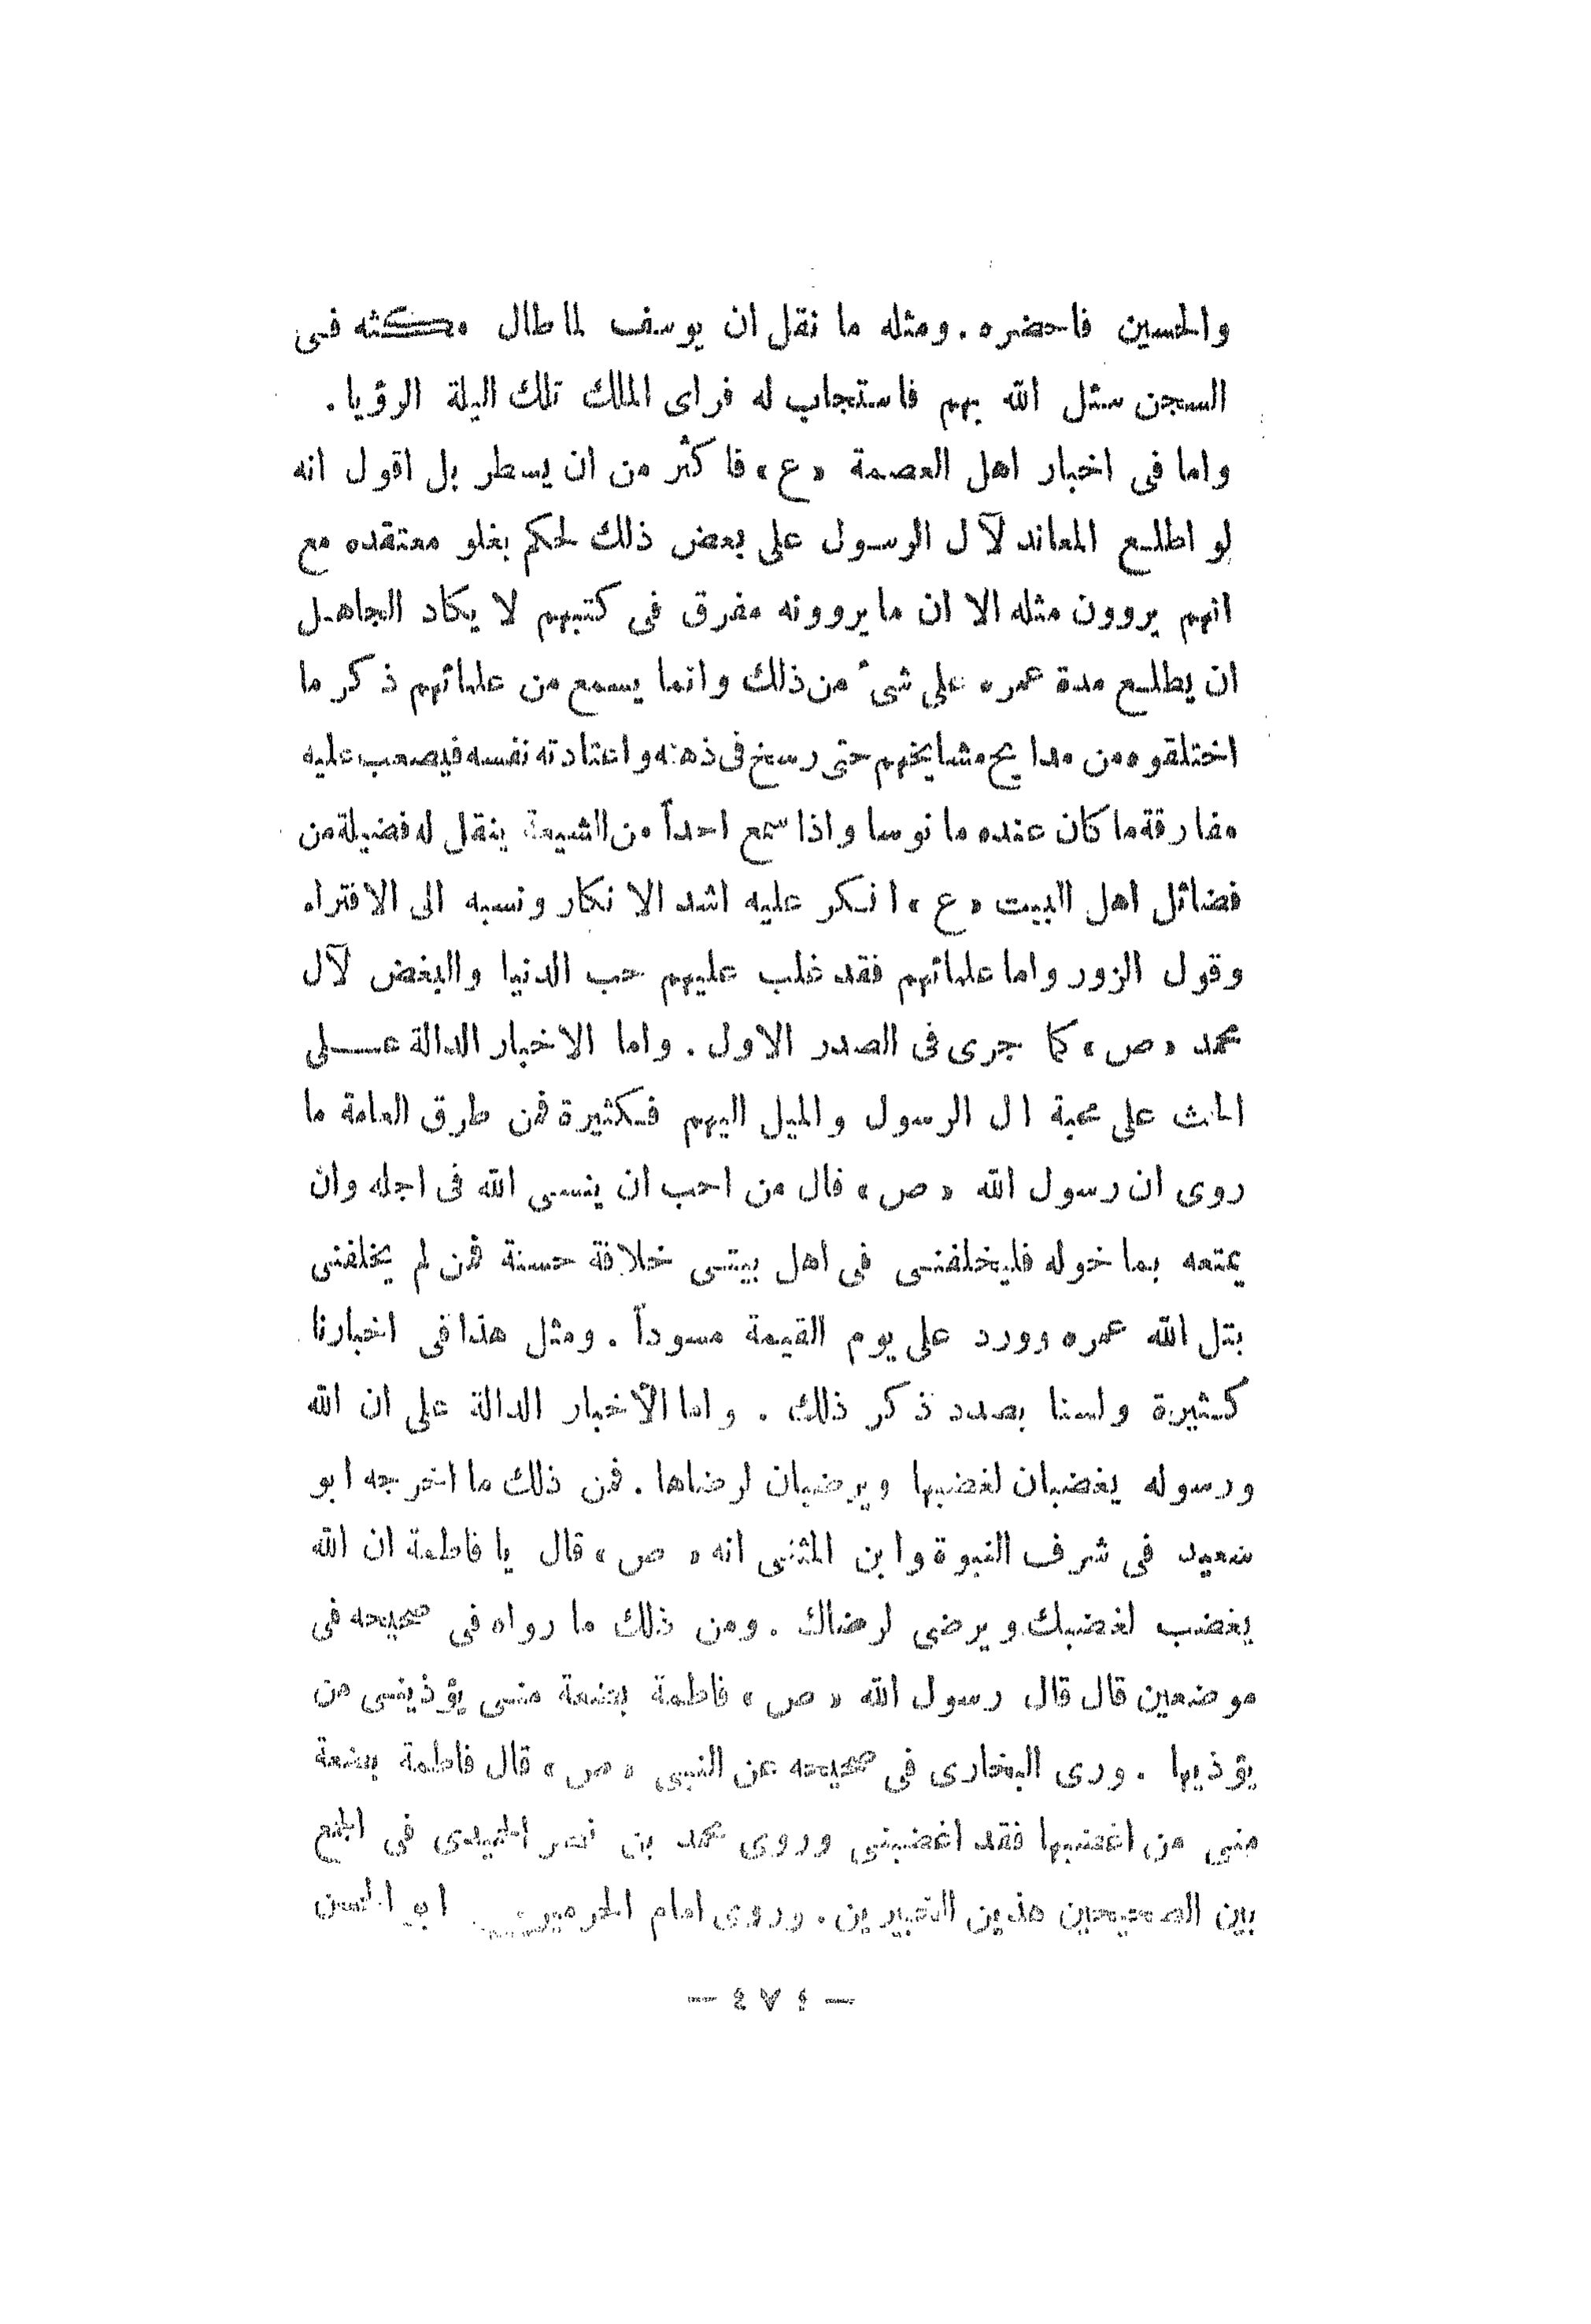 والحسين فاحضره. ومثله ما نقل ان يوسف لما طال مكثه فى
السجن سئل الله بهم فاستجاب له فراى الملك تلك اليلة الرؤيا.
واما فى اخبار اهل العصمة «ع» فا كثر من ان يسطر بل اقول انه
لو اطلع المعاند لآل الرسول على بعض ذلك لحكم بغلو معتقده مع
انهم يروون مثله الا ان ما يروونه مفرق فى كتبهم لا يكاد الجاهل
ان يطلع مدة عمره على شىء من ذلك وانما يسمع من علمائهم ذكر ما
اختلقوه من مدايح مشايخهم حتى رسخ فى ذهنه واعتادته نفسه فيصعب عليه
مفارقة ما كان عنده مانوسا واذا سمع احداً من الشيعة ينقل له فضيلة من
فضائل اهل البيت «ع» انكر عليه اشد الانكار ونسبه الى الافتراء
وقول الزور واما علمائهم فقد غلب عليهم حب الدنيا والبغض لآل
محمد «ص» كما جرى فى الصدر الاول. واما الاخبار الدالة على
الحث على محبة ال الرسول والميل اليهم فكثيرة فمن طرق العامة ما
روى ان رسول الله «ص» قال من احب ان ينسى الله فى اجله وان
يمتعه بما خوله فليخلفنى فى اهل بيتى خلافة حسنة فمن لم يخلفنى
بتل الله عمره وورد على يوم القيمة مسوداً. ومثل هذا فى اخبارنا
كثيرة ولسنا بصدد ذكر ذلك. واما الأخبار الدالة على ان الله
ورسوله يغضبان لغضبها ويرضيان لرضاها. فمن ذلك ما اخرجه ابو
سعيد فى شرف النبوة وابن المثنى انه «ص» قال يا فاطمة ان الله
يغضب لغضبك ويرضى لرضاك. ومن ذلك ما رواه فى صحيحه فى
موضعين قال قال رسول الله «ص» فاطمة بضعة منى يؤذينى من
يؤذيها. ورى البخارى فى صحيحه عن النبى «ص» قال فاطمة بضعة
منى من اغضبها فقد اغضبنى وروى محمد بن نصر الحميدى فى الجمع
بين الصحيحين هذين الخبرين. وروى امام الحرمين ابو الحسن
— ٤٧٤ —